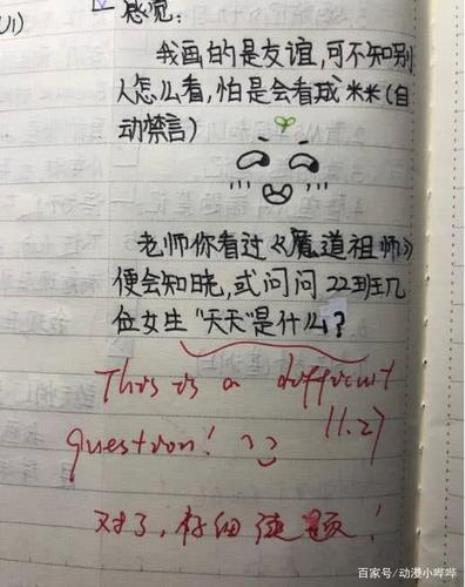 感觉:
我画的是友谊,可不知别
人怎么看,怕是会看成米米(自
动禁言)
老师你看过《魔道祖师》
便会知晓,或问问22班几
位女生"天天"是什么?
This is a difficult
question!
11.27
对了,仔细读题!
百家号/动漫小哔哔